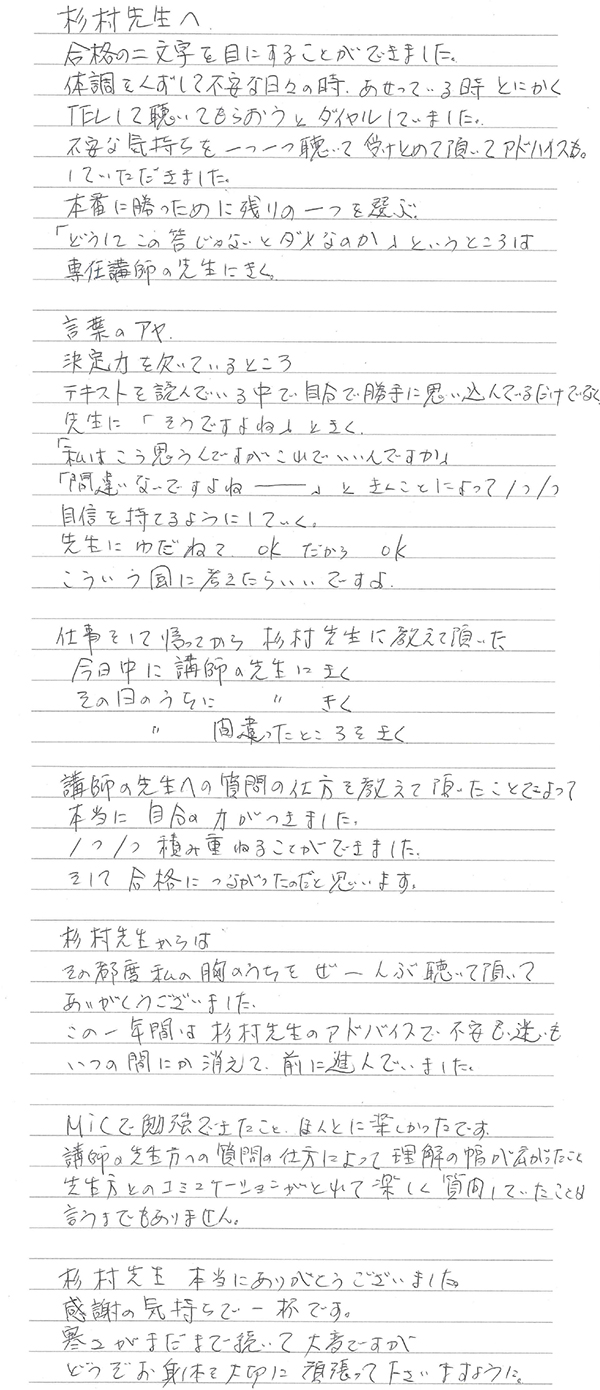 杉村先生へ
合格の二文字を目にすることができました。
体調をくずして不安な日々の時、あせっている時とにかく
TELして聴いてもらおうとダイヤルしていました。
不安な気持ちを一つ一つ聴いて受けとめて頂いてアドバイスも。
していただきました。
本番に勝つために残りの一つを選ぶ。
「どうしてこの答じゃないとダメなのか」というところは
専任講師の先生にきく。
言葉のアヤ.
決定力を欠いているところ
テキストを読んでいる中で自分で勝手に思い込んでいるだけでなく
先生に「そうですよね」ときく.
「私はこう思うんですがこれでいいんですか」
「間違いないですよね――」ときくことによって1つ1つ
自信を持てるようにしていく。
先生にゆだねて OKだから OK
こういう風に考えたらいいですよ.
仕事をして帰ってから 杉村先生に教えて頂いた
今日中に講師の先生にきく
その日のうちに 〃 きく
〃 間違ったところをきく
講師の先生への質問の仕方を教えて頂いたことによって
本当に自分の力がつきました。
1つ1つ積み重ねることができました.
そして合格につながったのだと思います。
杉村先生からは
その都度私の胸のうちをぜーんぶ聴いて頂いて
ありがとうございました.
この一年間は杉村先生のアドバイスで不安も迷いも
いつの間にか消えて、前に進んでいました。
MICで勉強できたこと、ほんとに楽しかったです.
講師の先生方への質問の仕方によって理解の幅が広がったこと
先生方とのコミュニケーションがとれて楽しく質問していたことは
言うまでもありません。
杉村先生 本当にありがとうございました。
感謝の気持ちで一杯です。
寒さがまだまだ続いて大変ですが
どうぞお身体を大切に頑張って下さいますように。